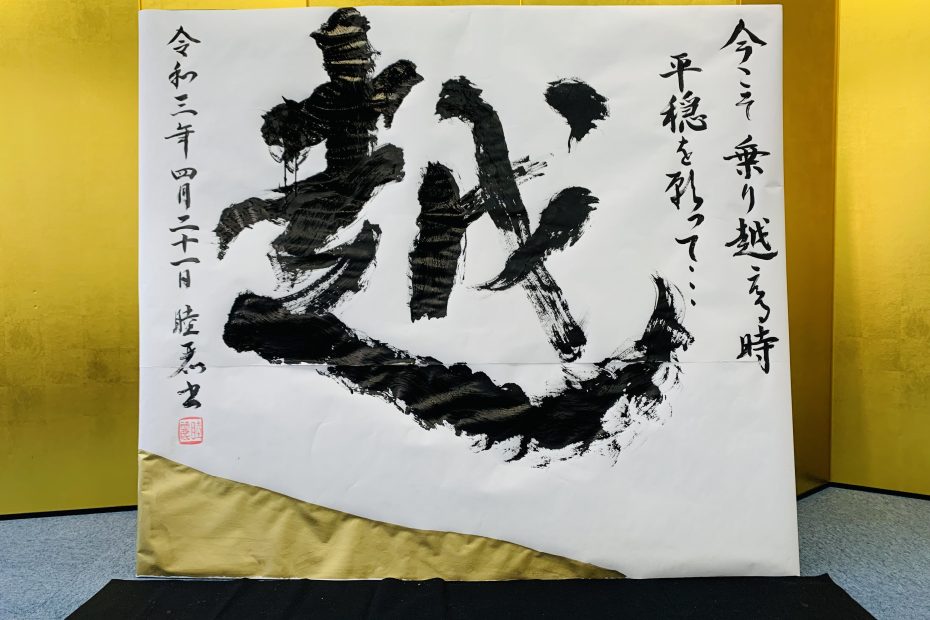 今こそ乗り越える時
平穏を願って・・・
越
令和三年四月二十一日 睦
書